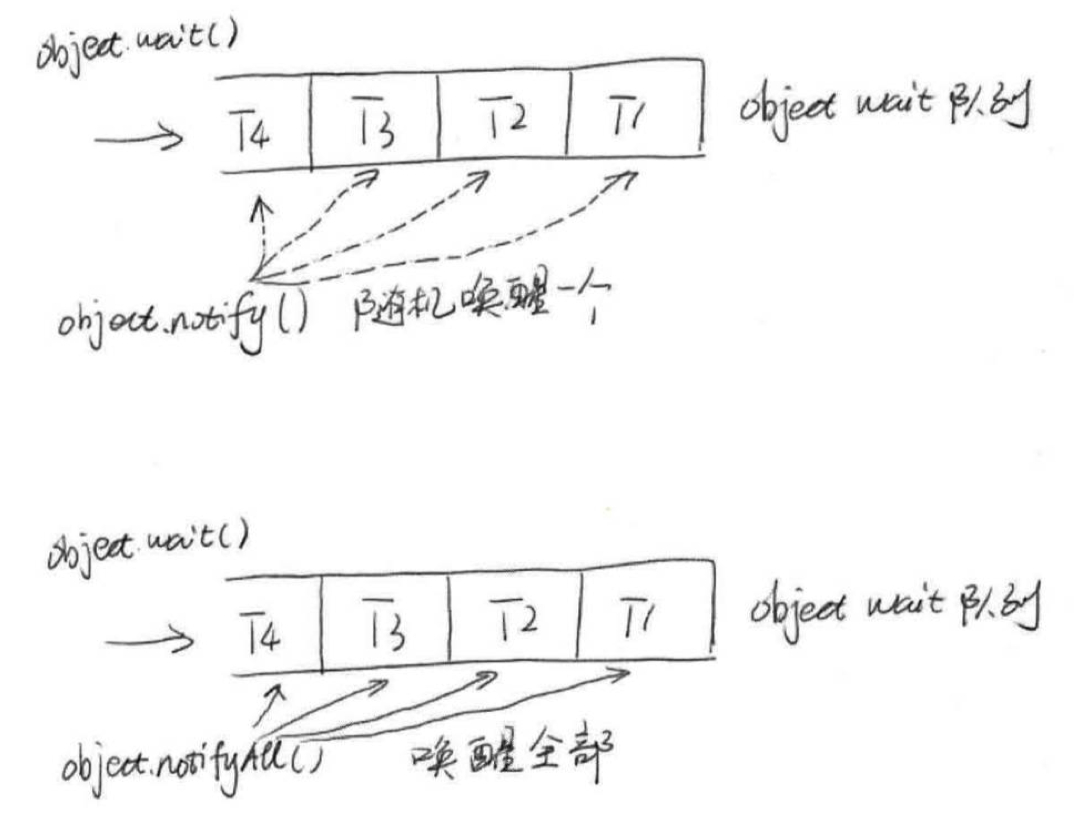 object.wait()
T4 T3 T2 T1
object wait 队列
object.notify() 随机唤醒一个
object.wait()
T4 T3 T2 T1
object wait 队列
object.notifyAll() 唤醒全部